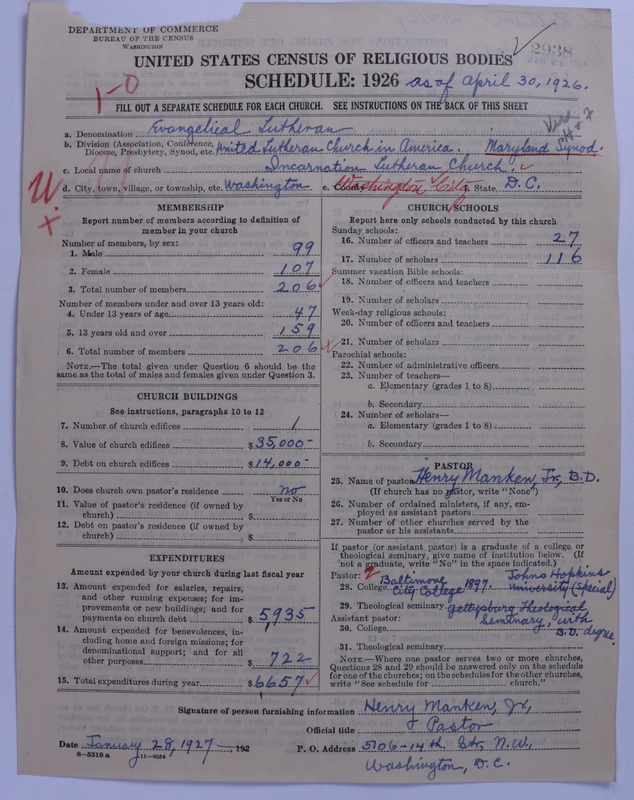 DEPARTMENT OF COMMERCE
BUREAU OF THE CENSUS
WASHINGTON
2938
UNITED STATES CENSUS OF RELIGIOUS BODIES
SCHEDULE: 1926 as of April 30, 1926.
1-0
FILL OUT A SEPARATE SCHEDULE FOR EACH CHURCH. SEE INSTRUCTIONS ON THE BACK OF THIS SHEET
a. Denomination Evangelical Lutheran
b. Division (Association, Conference, Diocese, Presbytery, Synod, etc. United Lutheran Church in America. Maryland Synod.
c. Local name of church Incarnation Lutheran Church.
d. City, town, village, or township, etc. Washington e. County Washington City f. State D.C.
MEMBERSHIP
Report number of members according to definition of
member in your church
Number of members, by sex:
1. Male 99
2. Female 107
3. Total number of members 206
Number of members under and over 13 years old:
4. Under 13 years of age 47
5. 13 years old and over 159
6. Total number of members 206
NOTE.—The total given under Question 6 should be the
same as the total of males and females given under Question 3.
CHURCH BUILDINGS
See instructions, paragraphs 10 to 12
7. Number of church edifices 1
8. Value of church edifices $35,000-
9. Debt on church edifices $14,000-
10. Does church own pastor's residence no
Yes or No
11. Value of pastor's residence (if owned by
church) $
12. Debt on pastor's residence (if owned by
church) $
EXPENDITURES
Amount expended by your church during last fiscal year
13. Amount expended for salaries, repairs,
and other running expenses; for im-
provements or new buildings; and for
payments on church debt $5,935
14. Amount expended for benevolences, in-
cluding home and foreign missions; for
denominational support; and for all
other purposes $722
15. Total expenditures during year $6657
CHURCH SCHOOLS
Report here only schools conducted by this church
Sunday schools:
16. Number of officers and teachers 27
17. Number of scholars 116
Summer vacation Bible schools:
18. Number of officers and teachers
19. Number of scholars
Week-day religious schools:
20. Number of officers and teachers
21. Number of scholars
Parochial schools:
22. Number of administrative officers
23. Number of teachers—
a. Elementary (grades 1 to 8)
b. Secondary
24. Number of scholars—
a. Elementary (grades 1 to 8)
b. Secondary
PASTOR
25. Name of pastor Henry Manken, Jr., B.D.
(If church has no pastor, write "None")
26. Number of ordained ministers, if any, em-
ployed as assistant pastors
27. Number of other churches served by the
pastor or his assistants
If pastor (or assistant pastor) is a graduate of a college or
theological seminary, give name of institution below. (If
not a graduate, write "No" in the space indicated.)
Pastor:
28. College Baltimore City College 1897. Johns Hopkins University (Special)
29. Theological seminary Gettysburg Theological
Assistant pastor: Seminary, with
30. College B.D. degree.
31. Theological seminary
NOTE.—Where one pastor serves two or more churches,
Questions 28 and 29 should be answered only on the schedule
for one of the churches; on the schedules for the other churches,
write "See schedule for church."
Signature of person furnishing information Henry Manken, Jr,
Official title Pastor
Date January 28, 1927 — , 192
P. O. Address 5706-14th St., N.W.,
8-5518 a 11-9054
Washington, D.C.